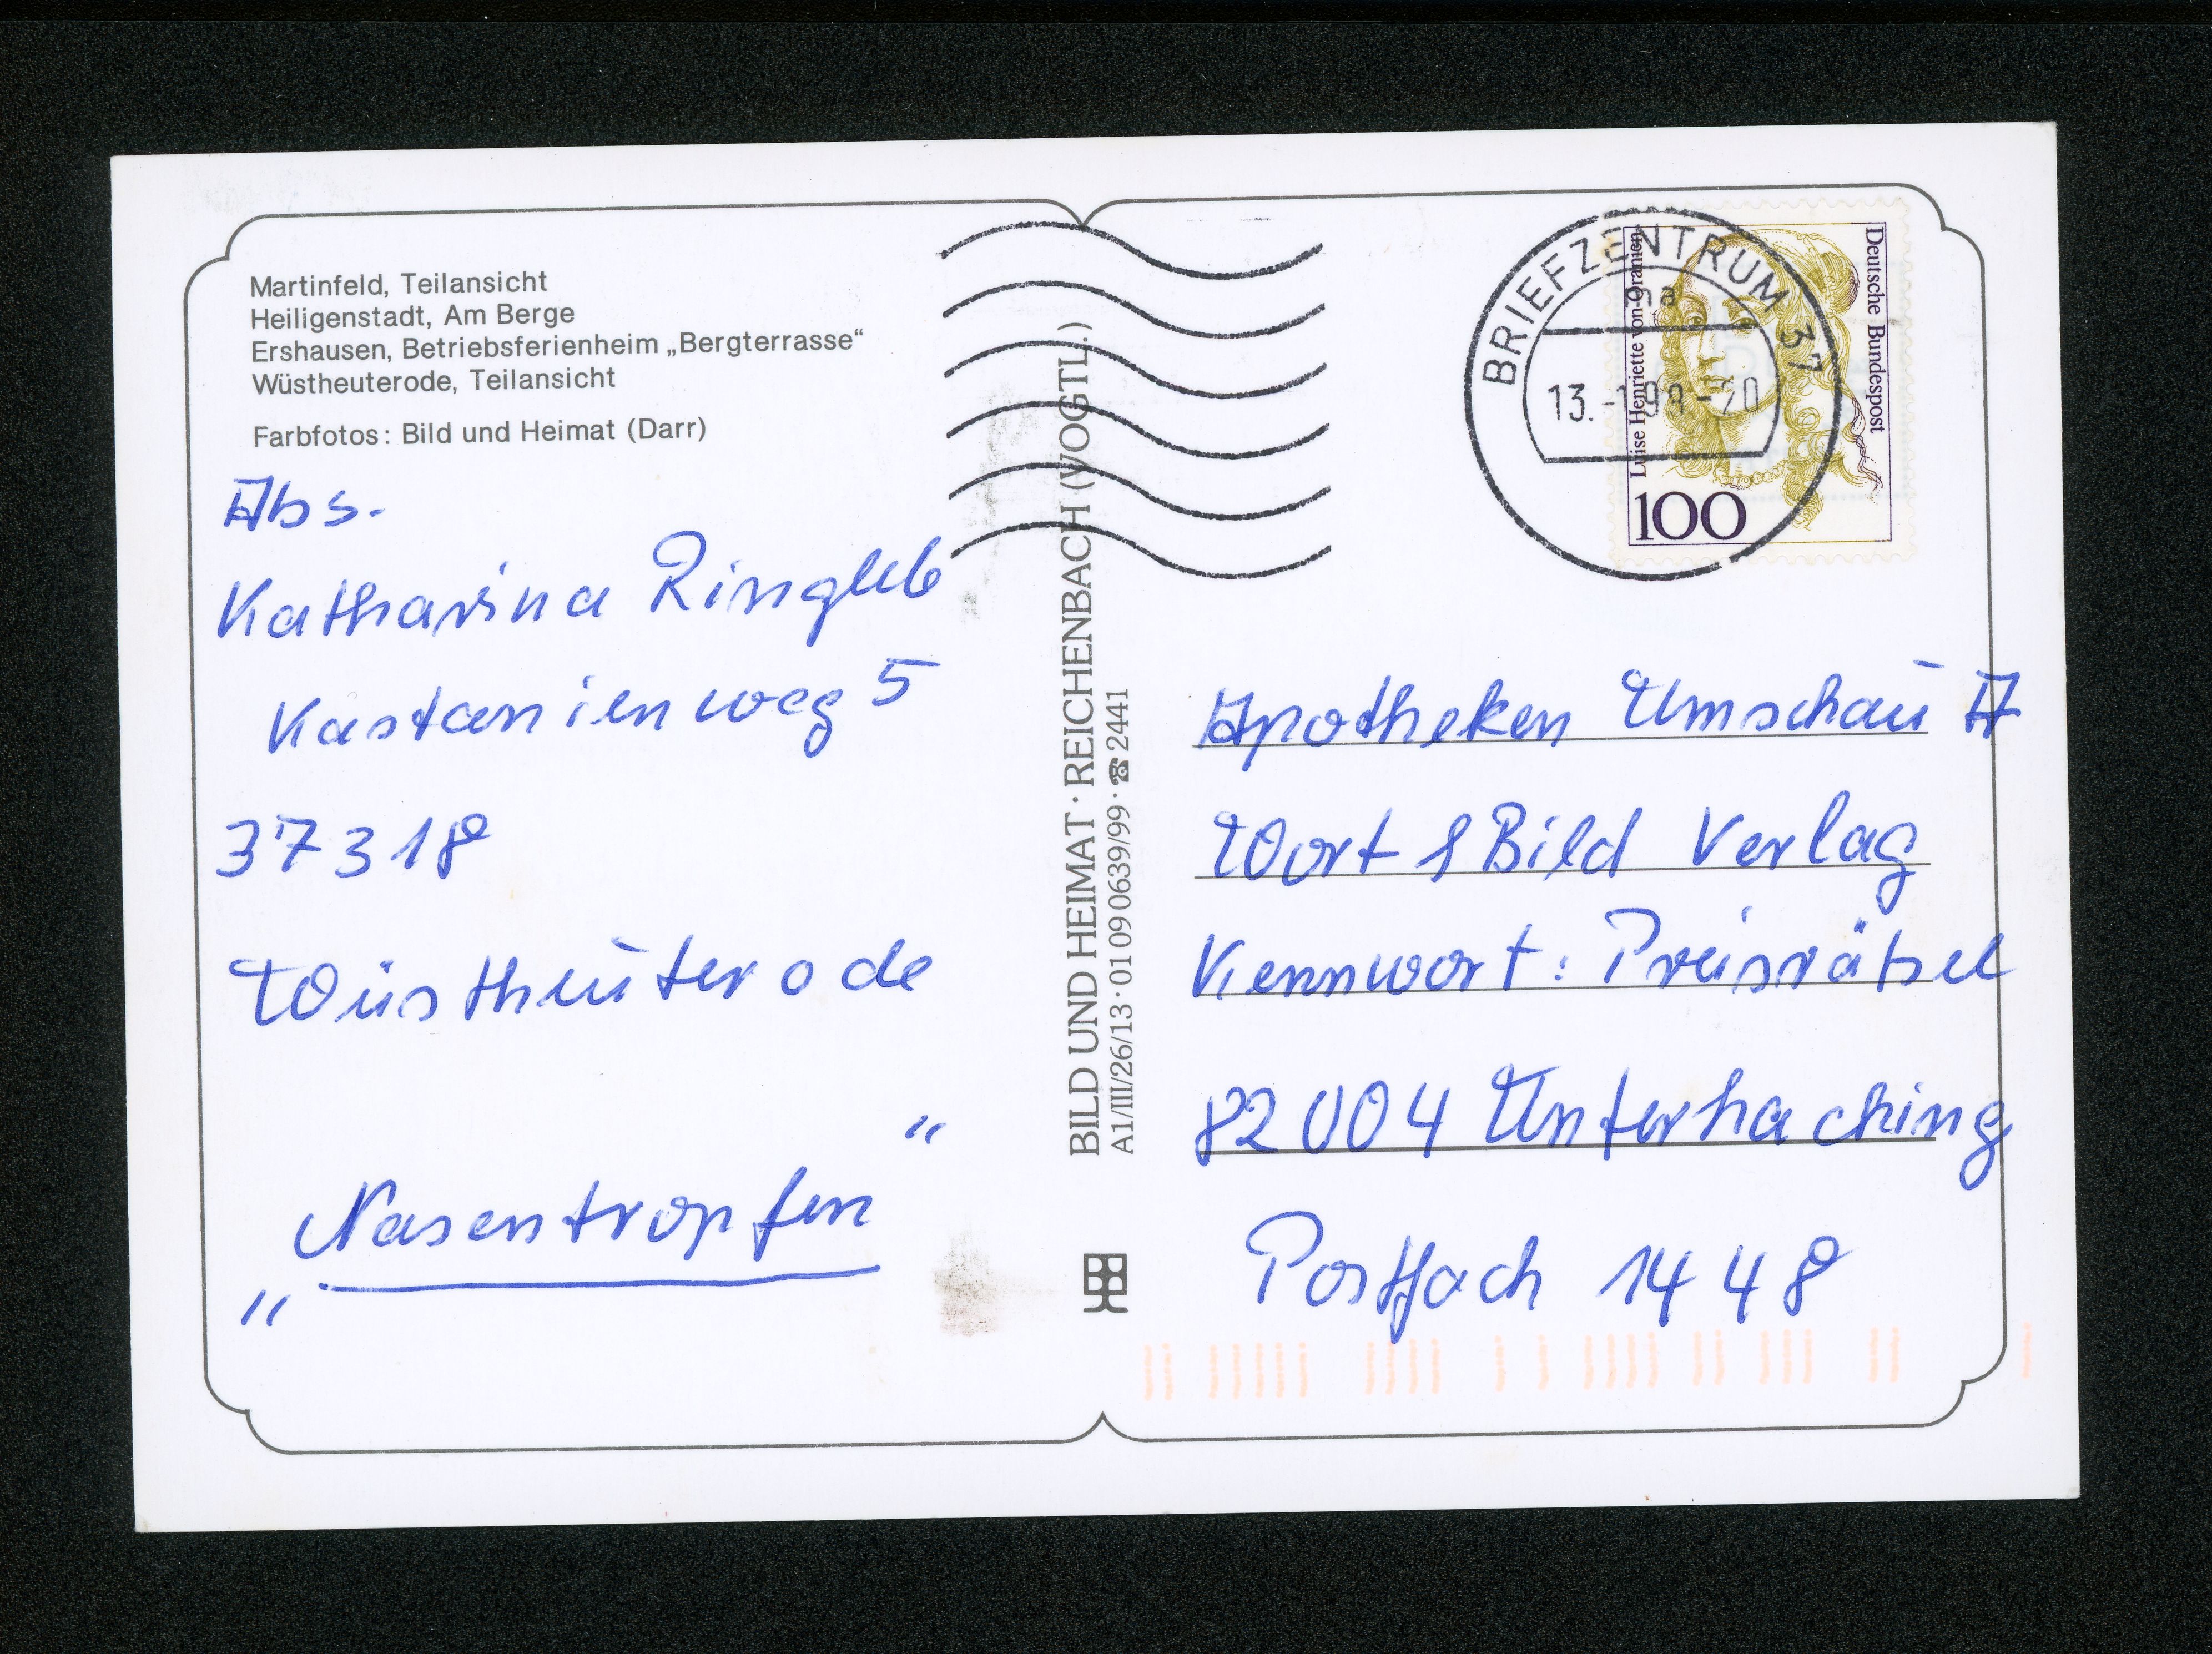 Martinfeld, Teilansicht
Heiligenstadt, Am Berge
Ershausen, Betriebsferienheim „Bergterrasse“
Wüstheuterode, Teilansicht
Farbfotos: Bild und Heimat (Darr)
Abs.
Katharina Ringleb
Kastanienweg 5
37318
Wüstheuterode
„Nasentropfen“
BILD UND HEIMAT · REICHENBACH (VOGTL.)
A1/III/26/13 · 01 09 0639/99 · ☎ 2441
BRIEFZENTRUM 37
13.-1
Luise Henriette von Oranien
Deutsche Bundespost
100
Apotheken Umschau A
Wort & Bild Verlag
Kennwort: Preisrätsel
82004 Unterhaching
Postfach 1448